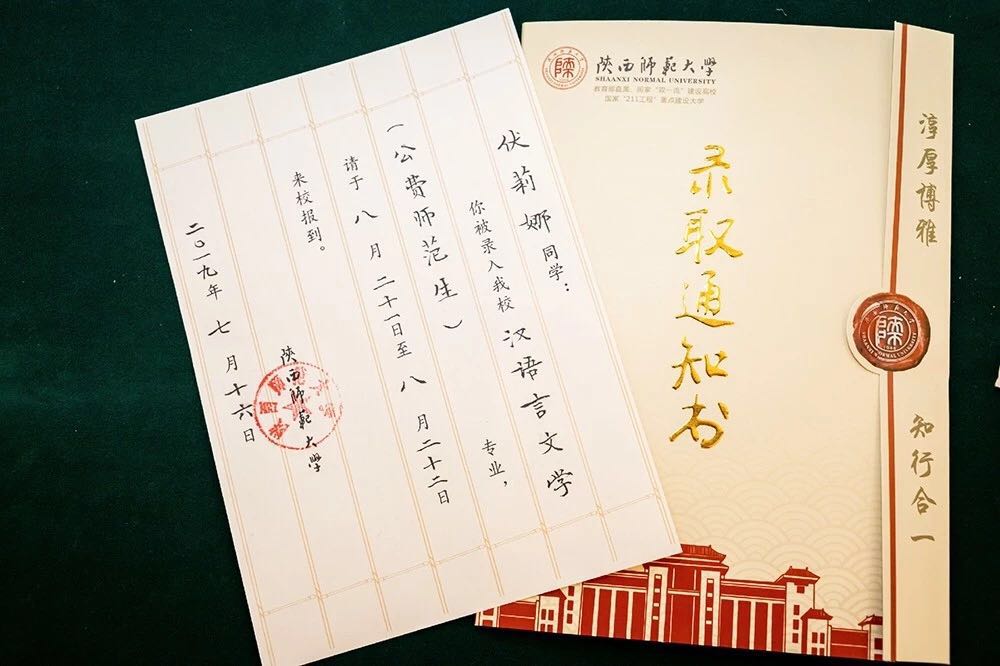 伏莉娜同学：
你被录入我校汉语言文学专业，
（公费师范生）
请于八月二十一日至八月二十二日
来校报到。
陕西师范大学
二〇一九年七月十六日
陕西师范大学
SHAANXI NORMAL UNIVERSITY
教育部直属、国家“双一流”建设高校
国家“211工程”重点建设大学
录取通知书
淳厚博雅
知行合一